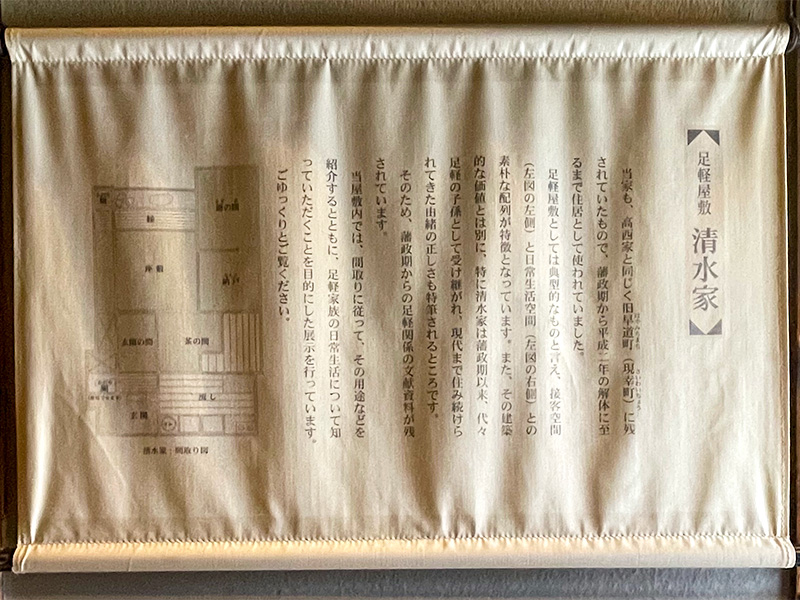 足軽屋敷 清水家
当家も、高西家と同じく旧早道町（現幸町）に残
されていたもので、藩政期から平成二年の解体に至
るまで住居として使われていました。
足軽屋敷としては典型的なものと言え、接客空間
（左図の左側）と日常生活空間（左図の右側）との
素朴な配列が特徴となっています。また、その建築
的な価値とは別に、特に清水家は藩政期以来、代々
足軽の子係として受け継がれ、現代まで住み続けら
れてきた由緒の正しさも特筆されるところです。
そのため、藩政期からの足軽関係の文献資料が残
されています。
当屋敷内では、間取りに従って、その用途などを
紹介するとともに、足軽家族の日常生活について知
っていただくことを目的にした展示を行っています。
ごゆっくりとご覧ください。
縁
座敷
納戸
玄関の間
茶の間
流し
玄関
清水家・間取り図